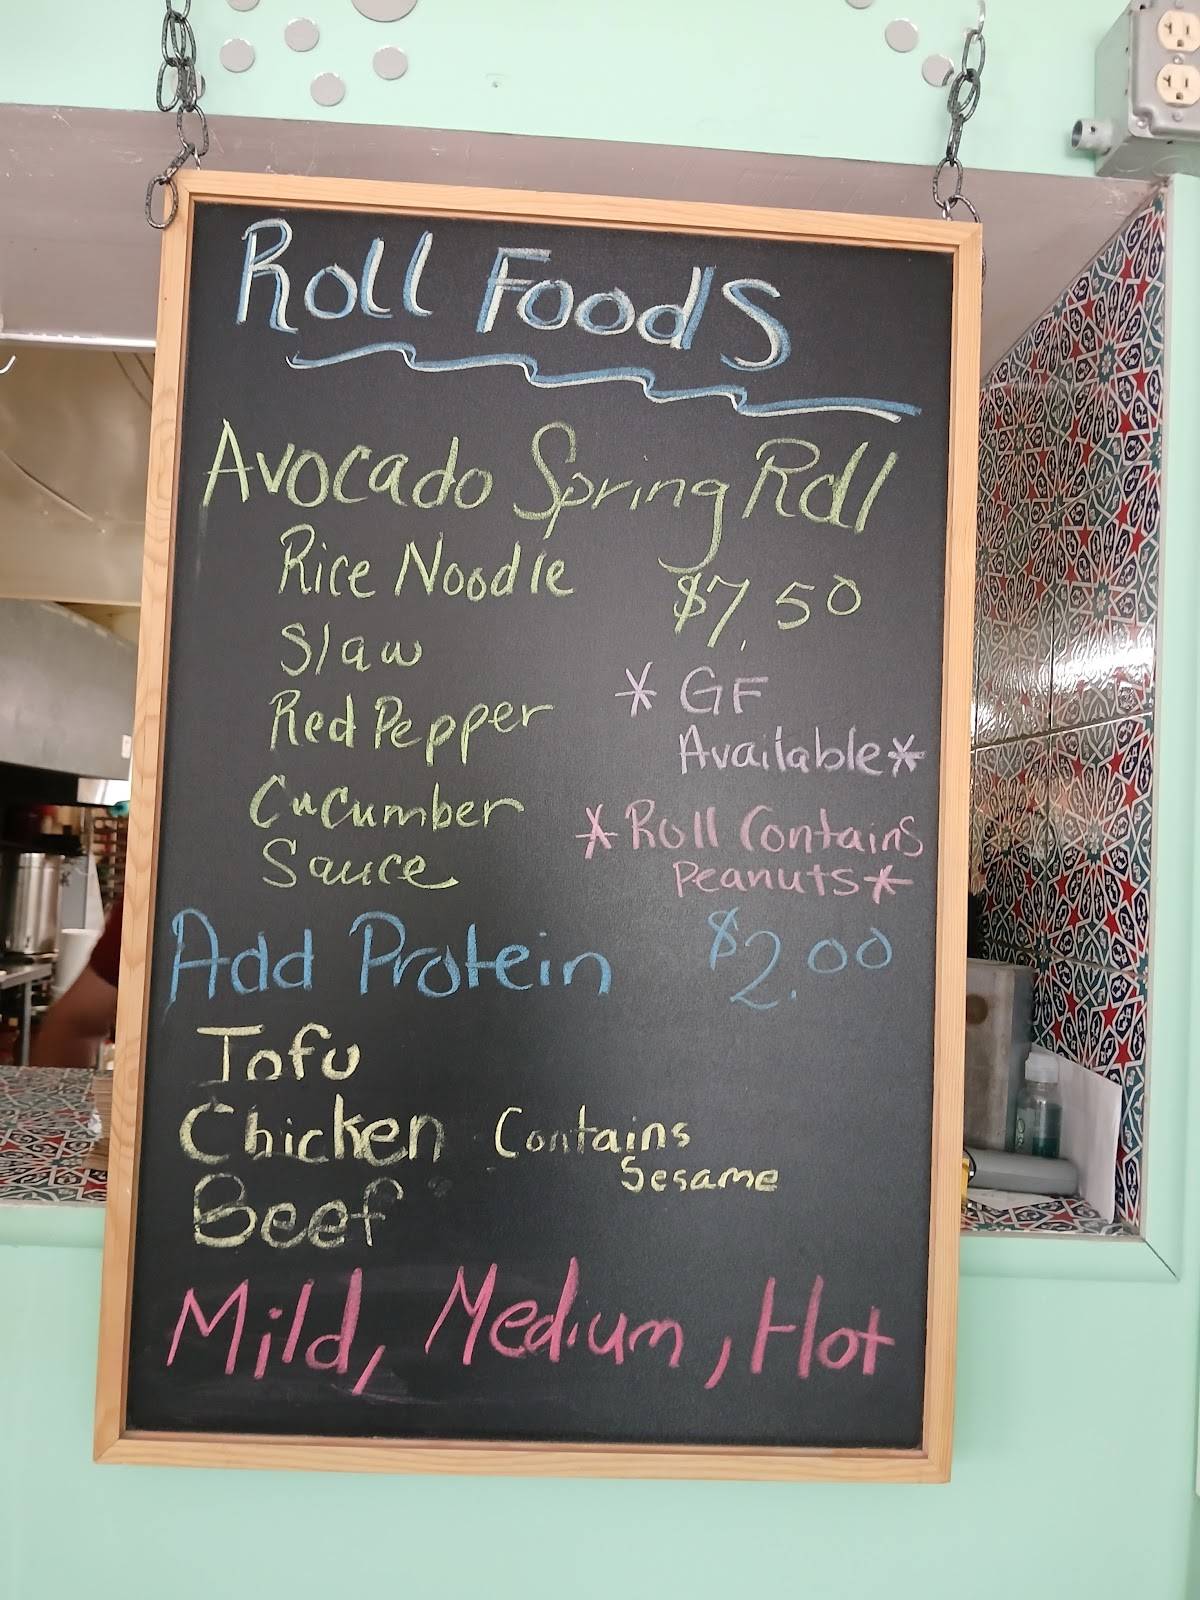 Roll Foods
Avocado Spring Roll
Rice Noodle $7.50
Slaw
* GF
Red Pepper
Available*
Cucumber
*Roll Contains
Sauce
Peanuts*
Add Protein $2.00
Tofu
Chicken Contains
Sesame
Beef
Mild, Medium, Hot